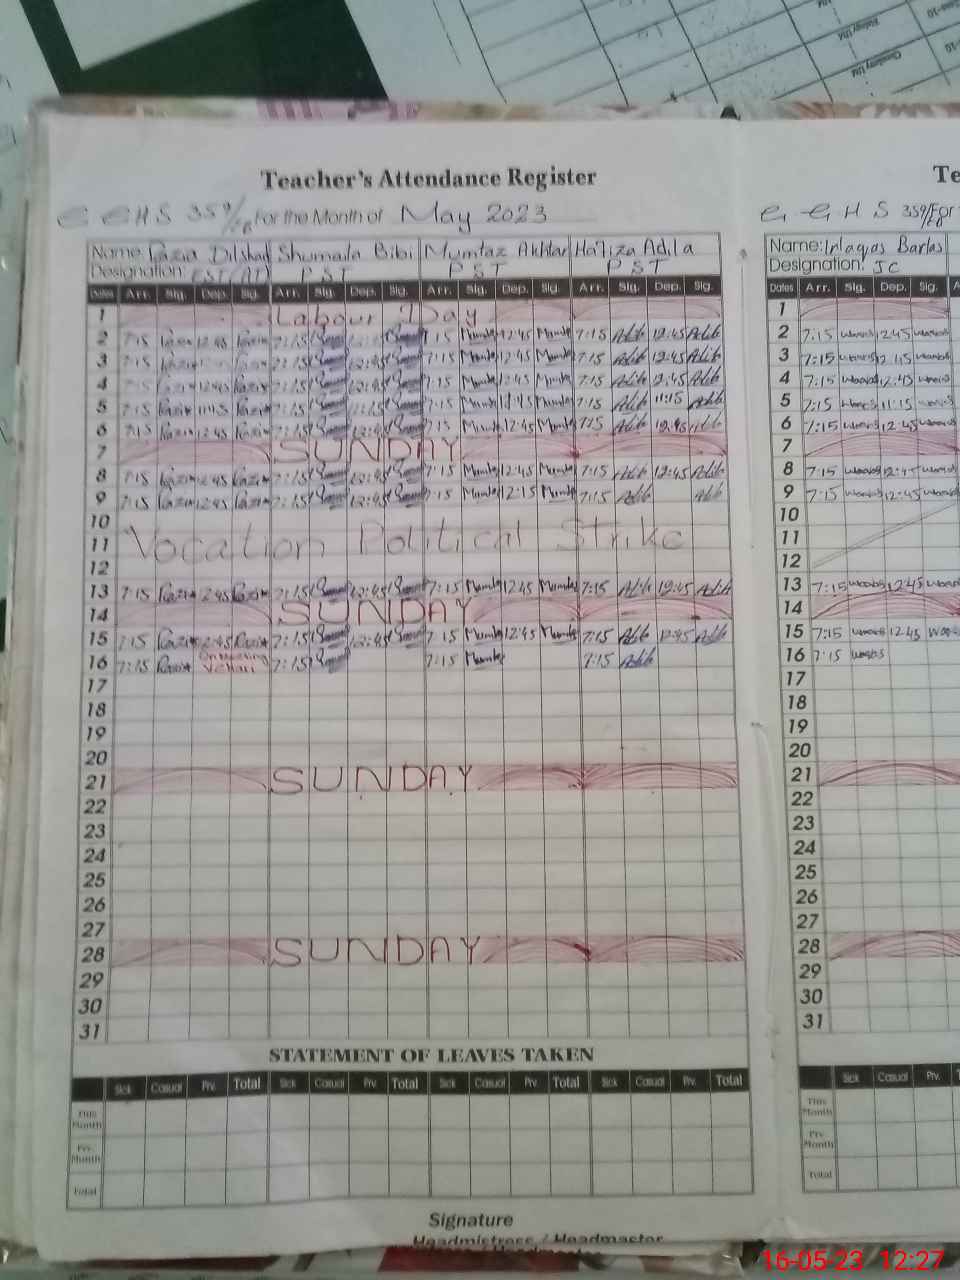 Teacher's Attendance Register
G G H S 359/EB For the Month of May 2023
Name: Razia Dilshad Shumaila Bibi Mumtaz Akhtar Hafiza Adila
Designation: EST (AT) P.S.T P S T P S T
Dates Arr. Sig. Dep. Sig. Arr. Sig. Dep. Sig. Arr. Sig. Dep. Sig. Arr. Sig. Dep. Sig.
1 Labour Day
2 7:15 Razia 12:45 Razia 7:15 7:15 Mumtaz 12:45 Mumtaz 7:15 Adila 12:45 Adila
3 7:15 Razia Razia 7:15 12:45 7:15 Mumtaz 12:45 Mumtaz 7:15 Adila 12:45 Adila
4 7:15 Razia 12:45 Razia 7:15 12:45 7:15 Mumtaz 12:45 Mumtaz 7:15 Adila 12:45 Adila
5 7:15 Razia 11:15 Razia 7:15 11:15 7:15 Mumtaz 11:15 Mumtaz 7:15 Adila 11:15 Adila
6 7:15 Razia 12:45 Razia 7:15 12:45 7:15 Mumtaz 12:45 Mumtaz 7:15 Adila 12:45
7 SUNDAY
8 7:15 Razia 12:45 Razia 7:15 12:45 7:15 Mumtaz 12:45 Mumtaz 7:15 Adila 12:45 Adila
9 7:15 Razia 12:45 Razia 7:15 12:45 7:15 Mumtaz 12:15 Mumtaz 7:15 Adila Adila
10
11 Vocation Political Strike
12
13 7:15 Razia 12:45 Razia 7:15 12:45 7:15 Mumtaz 12:45 Mumtaz 7:15 Adila 12:45 Adila
14 SUNDAY
15 7:15 Razia 12:45 Razia 7:15 12:45 7:15 Mumtaz 12:45 Mumtaz 7:15 Adila 12:45 Adila
16 7:15 Razia On meeting Vehari 7:15 7:15 Mumtaz 7:15 Adila
17
18
19
20
21 SUNDAY
22
23
24
25
26
27
28 SUNDAY
29
30
31
STATEMENT OF LEAVES TAKEN
Sick Casual Prv. Total Sick Casual Prv. Total Sick Casual Prv. Total Sick Casual Prv. Total
This Month
Prv. Month
Total
Signature
Headmistress / Headmaster
Te
G G H S 359/ For
Name:
Designation: JC
Dates Arr. Sig. Dep. Sig. A
1
2 7:15 12:45
3 7:15 12:15
4 7:15 12:45
5 7:15 11:15
6 7:15 12:45
7
8 7:15 12:45
9 7:15 12:45
10
11
12
13 7:15 12:45
14
15 7:15 12:45
16 7:15
17
18
19
20
21
22
23
24
25
26
27
28
29
30
31
Sick Casual Prv. T
This Month
Prv. Month
Total
16-05-23 12:27